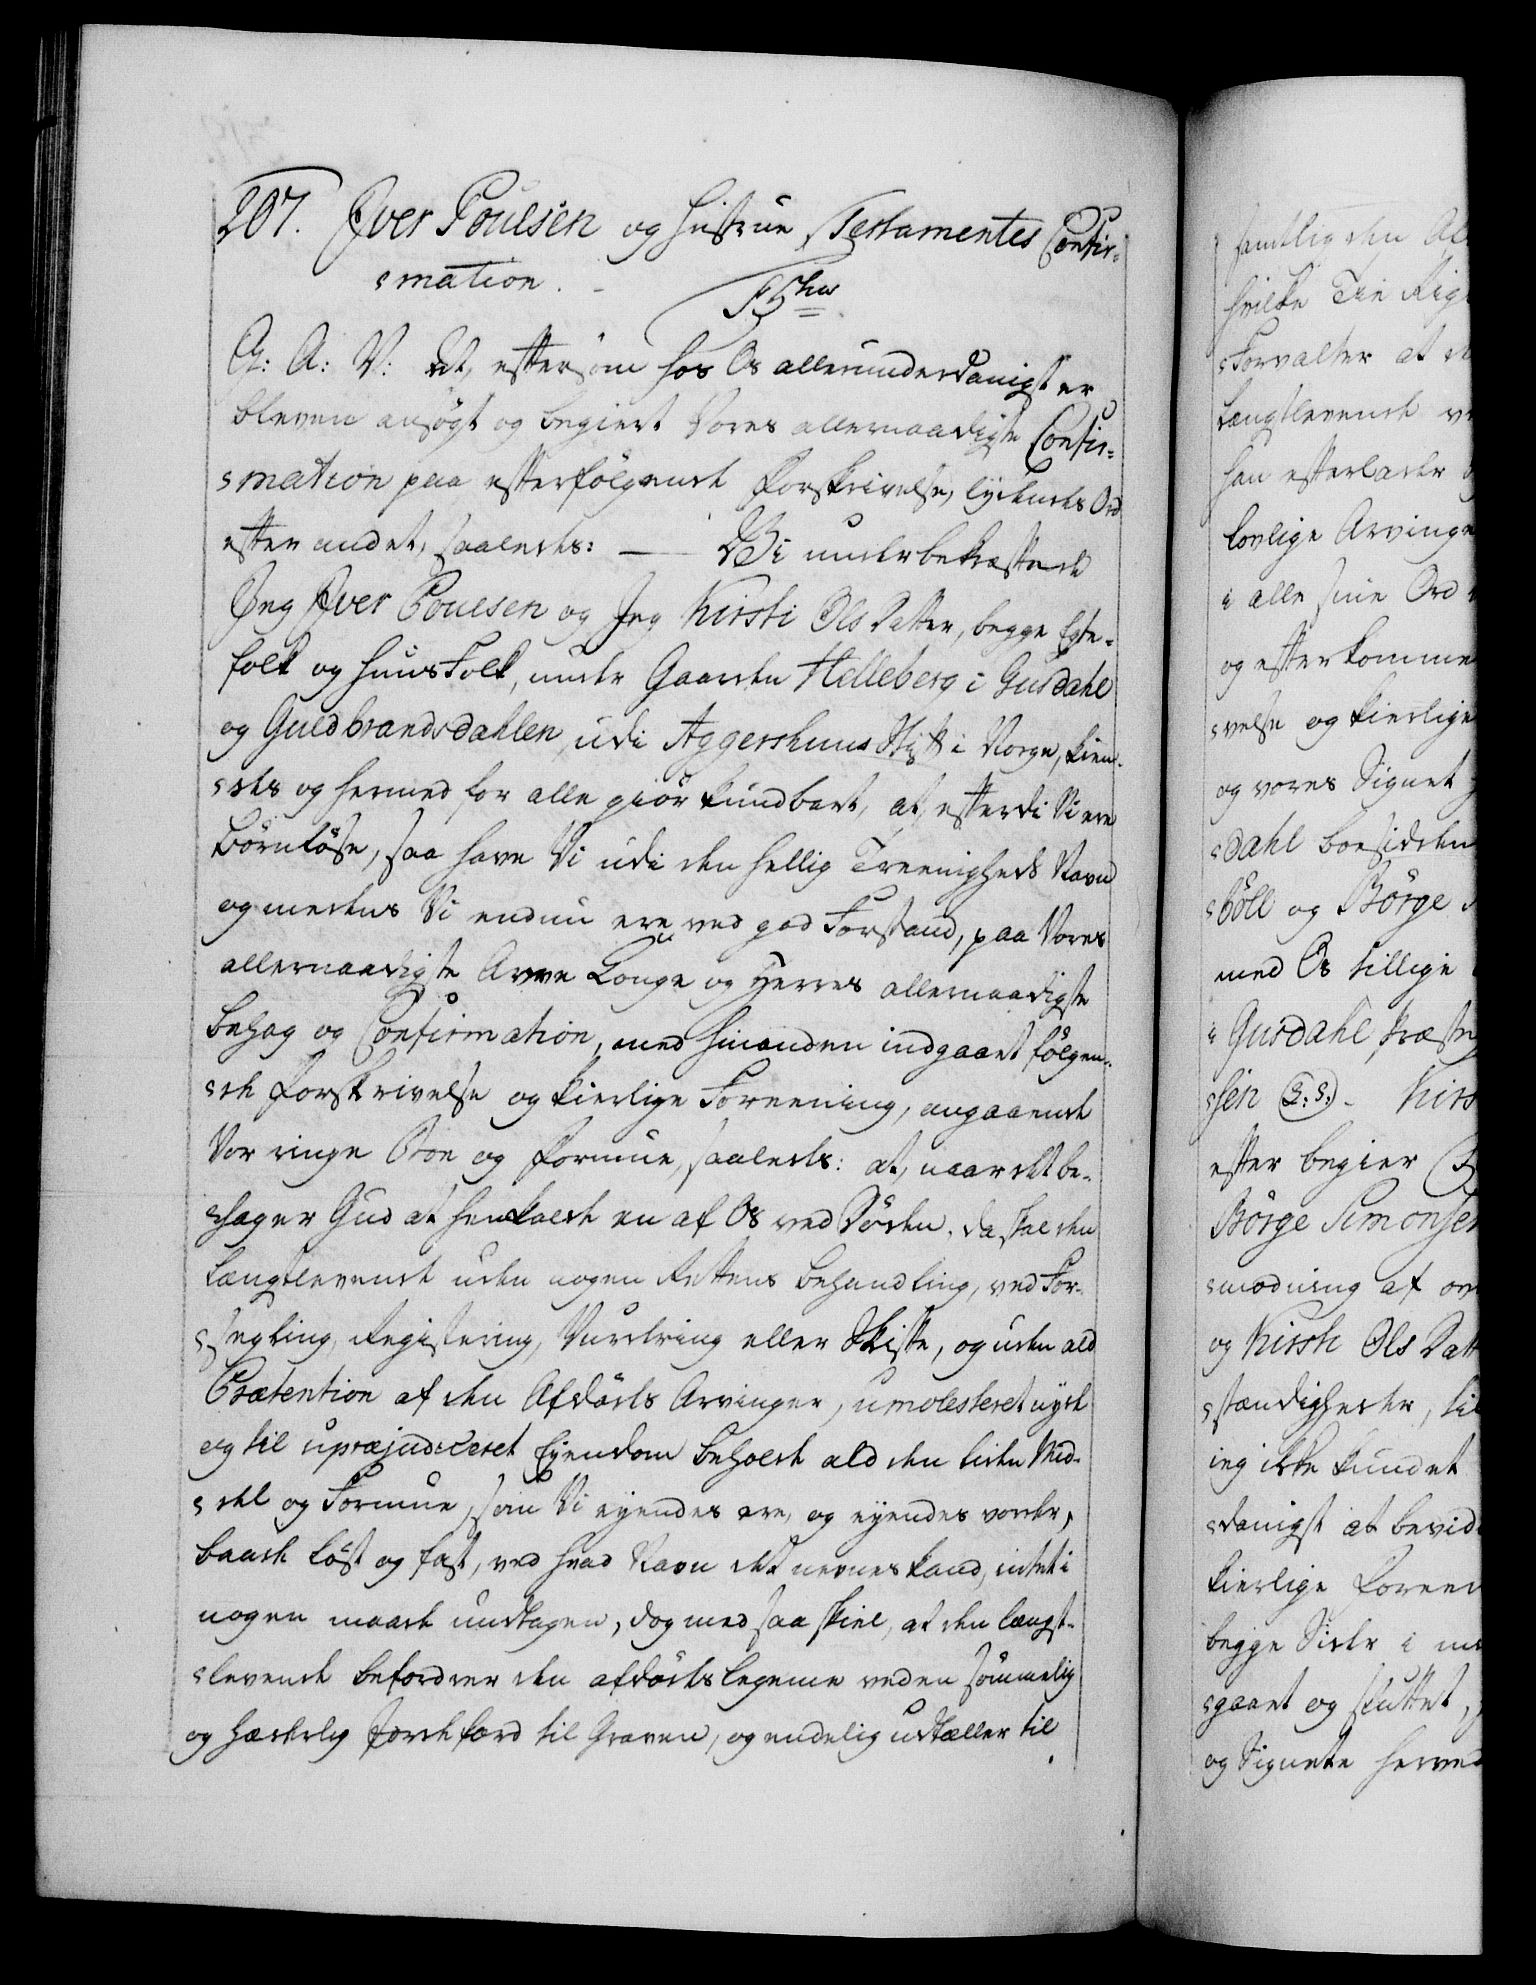 207. Iver Poulsen og Hustrue Testamentes Confir-
mation.
G: A: V: at, eftersom hos Os allerunderdanigst er
bleven ansögt og begiert Vores allernaadigste Confir-
mation paa efterfölgende Forskrivelse, lydendes Ord
efter andet, saaledes: — Vi underbekræftede
Jeg Iver Poulsen og Jeg Kirsti Olsdatter, begge Egte-
folk og HuusFolk, under Gaarden Helleberg i Gusdahl
og Guldbrandsdahlen, udi Aggershuus Stift i Norge, kien-
des og hermed for alle giör kundbart, at, efterdi Vi ere
Börnlöse, saa have Vi udi den hellig Treenigheds Navn
og medens Vi endnu ere ved god Forstand, paa Vores
allernaadigste Arve Konge og Herres allernaadigste
Behag og Confirmation, med hinanden indgaaet fölgen-
de Forskrivelse og kierlige Foreening, angaaende
Vor ringe Boe og Formue, saaledes: at, naar det be-
hager Gud at henkalde en af Os ved Döden, da skal den
længstlevende uden nogen Rettens Behandling, ved For-
segling, Registering, Vurdering eller Skifte, og uden ald
Prætention af den Afdödes Arvinger, umolesteret nyde
og til upræjudiceret Eyendom beholde ald den liden Mid-
del og Formue, som Vi eyendes ere, og eyendes vorder,
baade löst og fast, ved hvad Navn det nevnes kand, intet i
nogen maade undtagen, dog med saa skiel, at den længst-
levende befordrer den afdödes Legeme ved en sömmelig
og hæderlig Jordefærd til Graven, og endelig udtæller til
samtlig den
hvilke Tie
Forvalter at
længstlevende
han efterlader
lovlige Arvinge
i alle sine Ord
og efterkomme
velse og kierlige
og vores Signet
dahl boesidden
böll og Börge
med Os tillige
i Gusdahl,
sen (L: S:) - Kirs
efter begier
Börge Simonsen
modning af
og Kirsti Ols Datt
stændigheder, til
ieg ikke kundet
danigst at bevid
kierlige Foreen
begge Sider i
gaaet og sluttet,
og Signete herved